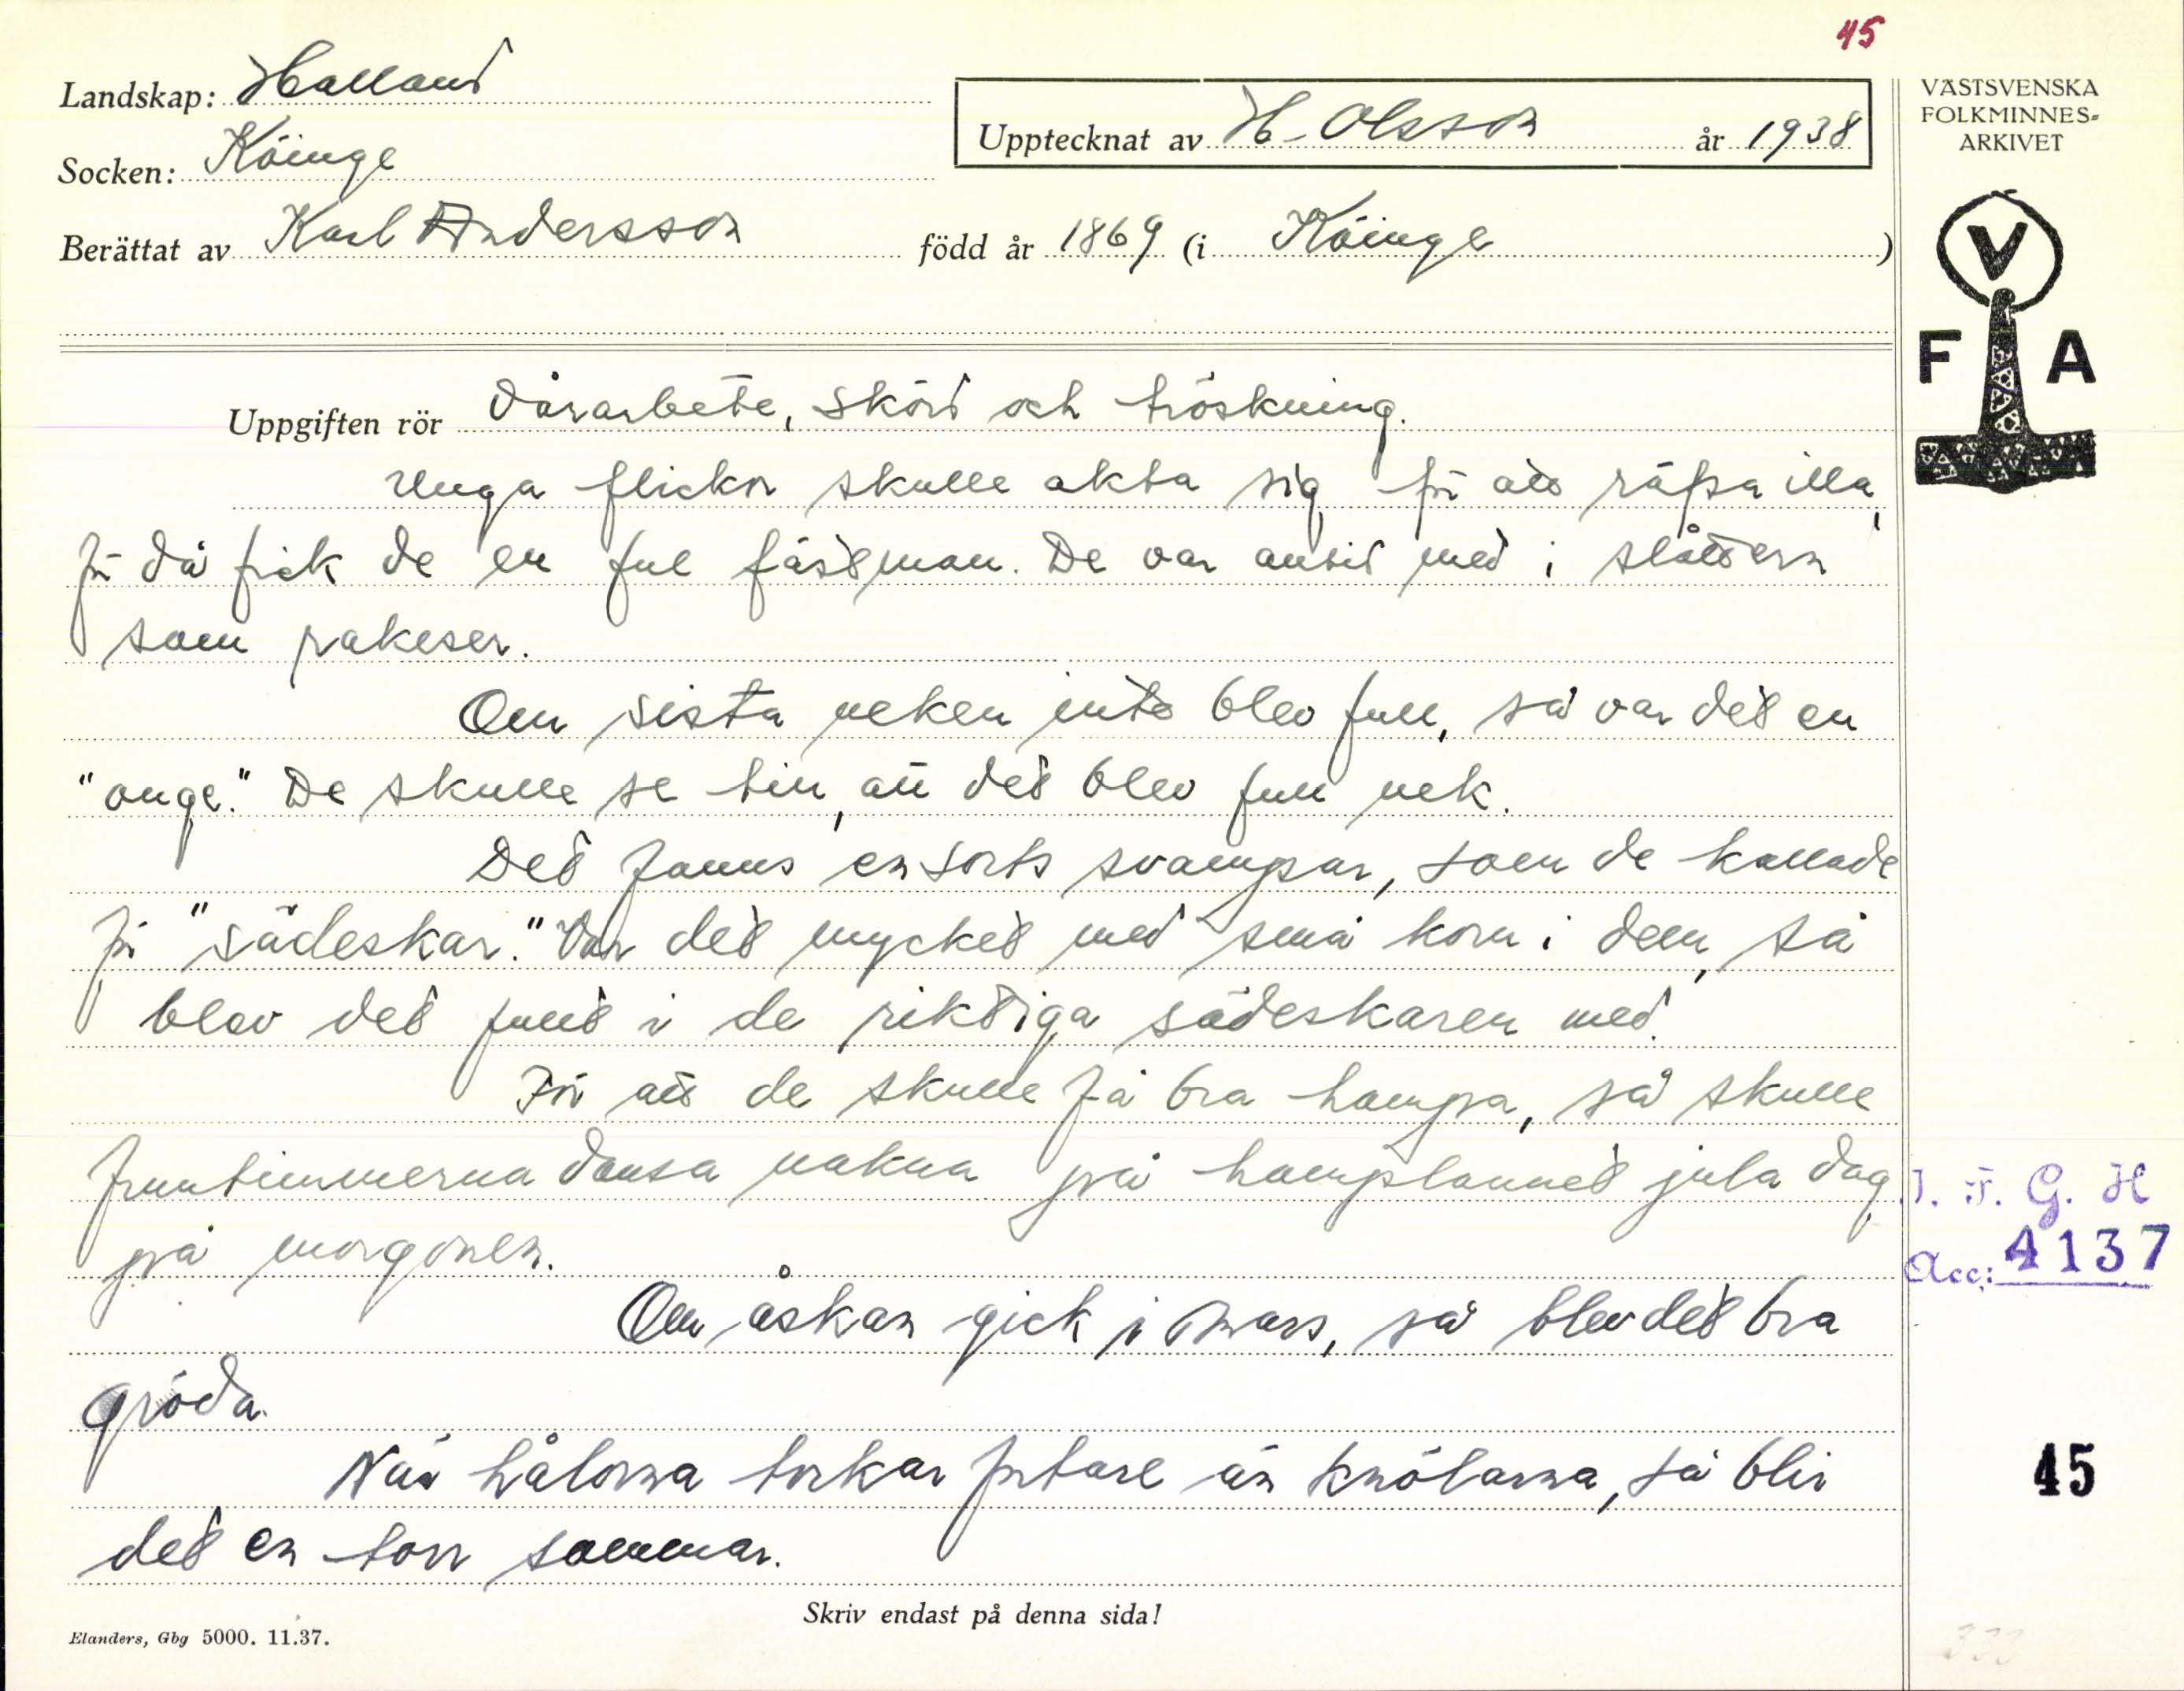 45
Landskap: Halland
Upptecknat av H. Olsson år 1938
VÄSTSVENSKA
FOLKMINNES=
ARKIVET
Socken: Köinge
Berättat av Karl Andersson född år 1869 (i Köinge )
V
F A
Uppgiften rör Vårarbete, skörd och tröskning.
Unga flickor skulle akta sig för att räfsa illa,
för då fick de en ful fästman. De var alltid med i slåttern
som rakeser.
Om sista neken inte blev full, så var det en
"onge." De skulle se till, att det blev full nek.
Det fanns en sorts svampar, som de kallade
för "sädeskar." Var det mycket med små korn i dem, så
blev det fullt i de riktiga sädeskaren med.
För att de skulle få bra hampa, så skulle
fruntimmerna dansa nakna på hamplannet jula dag
på morgonen.
I. F. G. H
Acc: 4137
Om åskan gick i mars, så blev det bra
gröda.
När hålorna torkar fortare än knölarna, så blir
45
det en torr sommar.
Skriv endast på denna sida!
Elanders, Gbg 5000. 11.37.
333